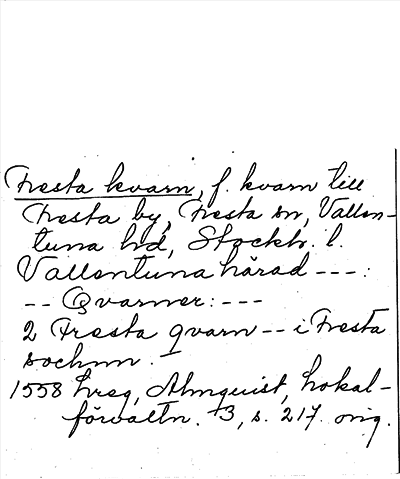 Fresta kvarn, f. kvarn till
Fresta by, Fresta sn, Vallen-
tuna hd, Stockh. l.
Vallentuna härad ---:
-- Qvarner: ---
2 Fresta qvarn -- i Fresta
sochnn.
1558 hreg, Almquist, Lokal-
förvaltn. 3, s. 217. orig.